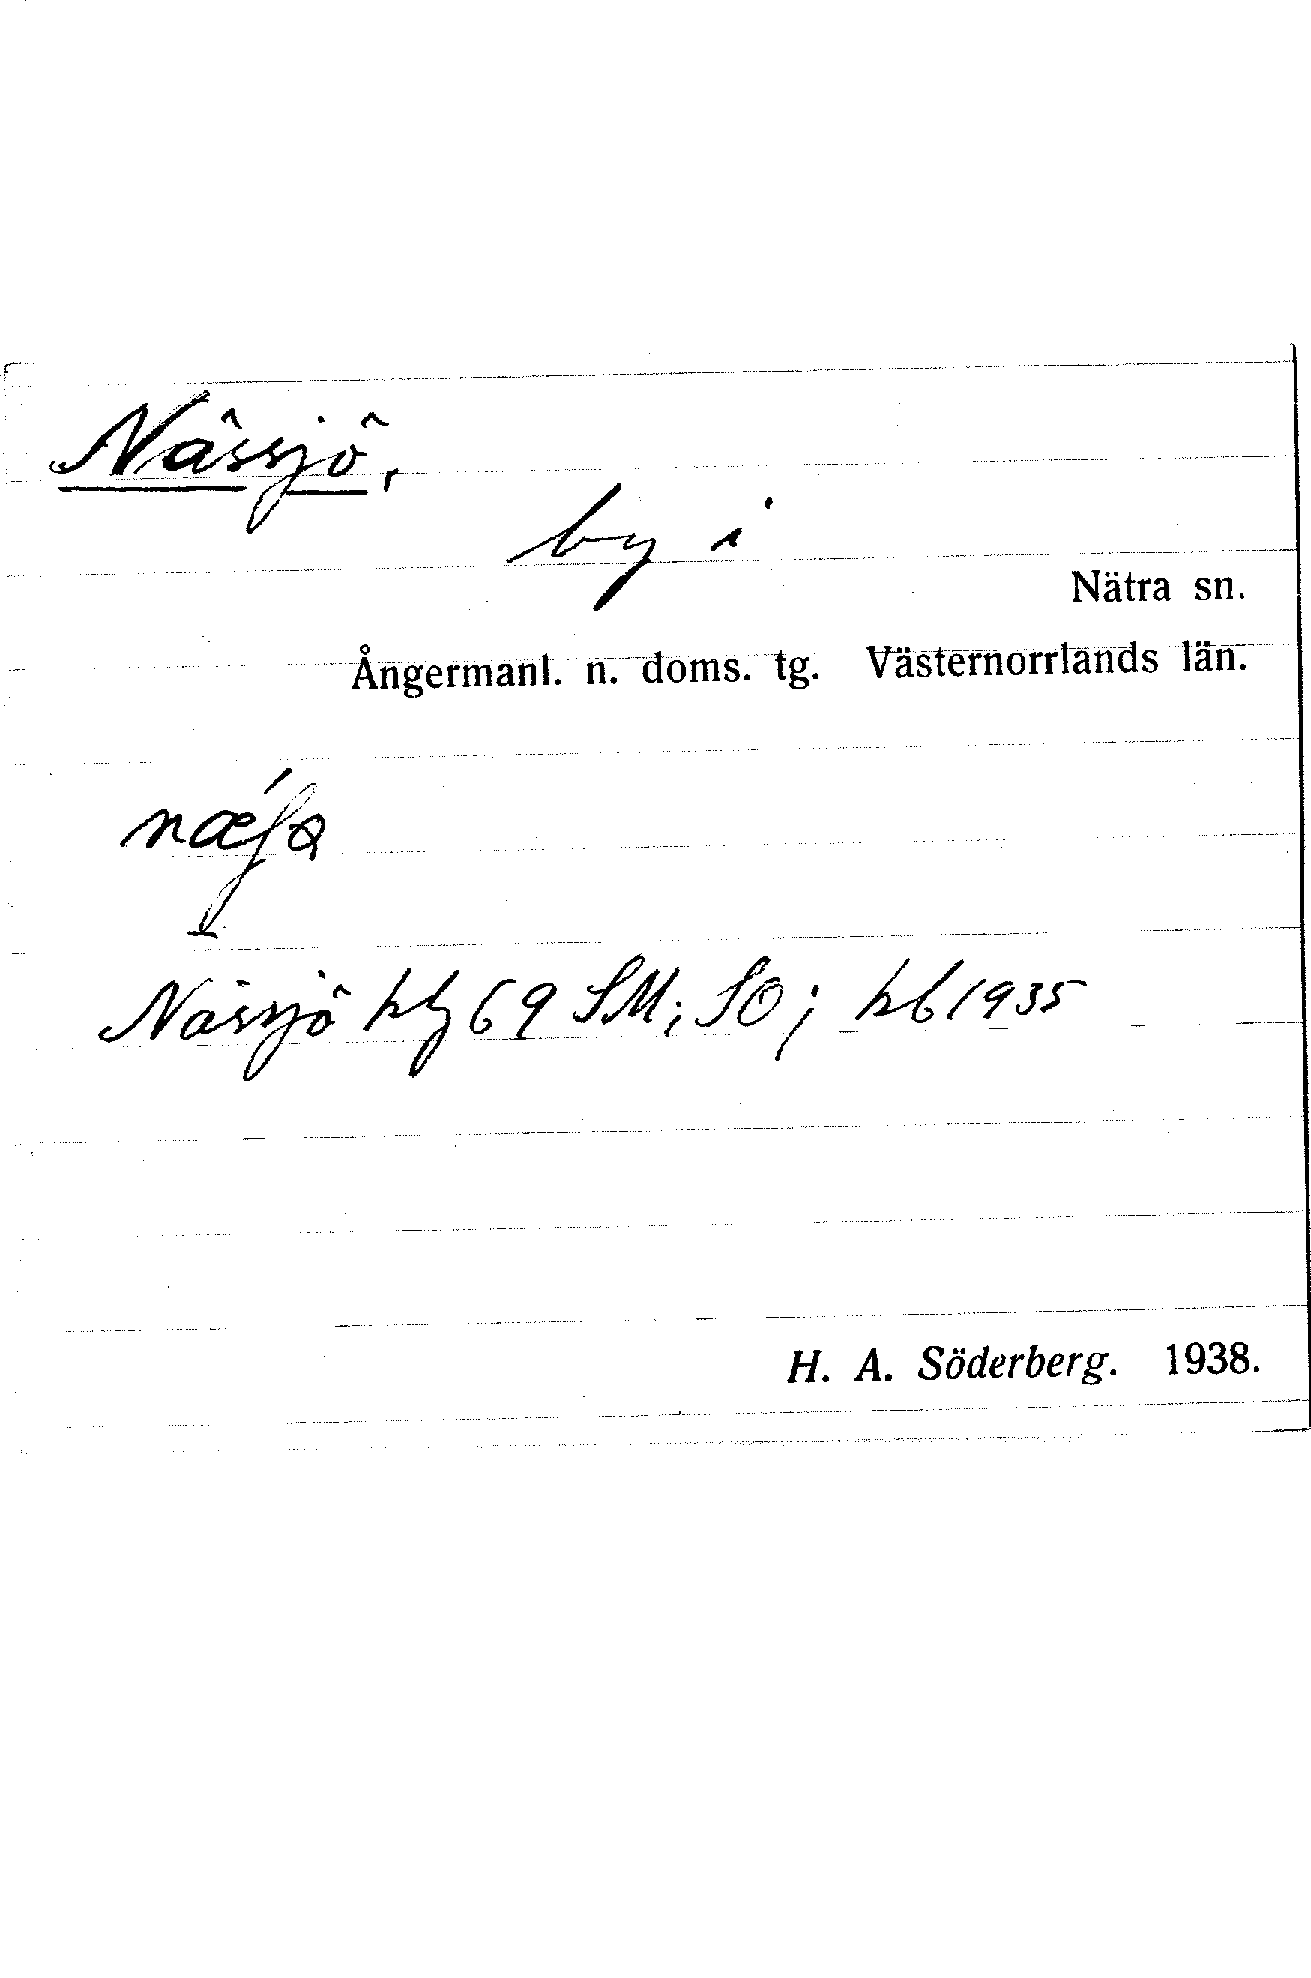 Nässjö,
by i
Nätra sn.
Ångermanl. n. doms. tg. Västernorrlands län.
Nässjö hfg 69 SM; SO; kb 1935
H. A. Söderberg. 1938.